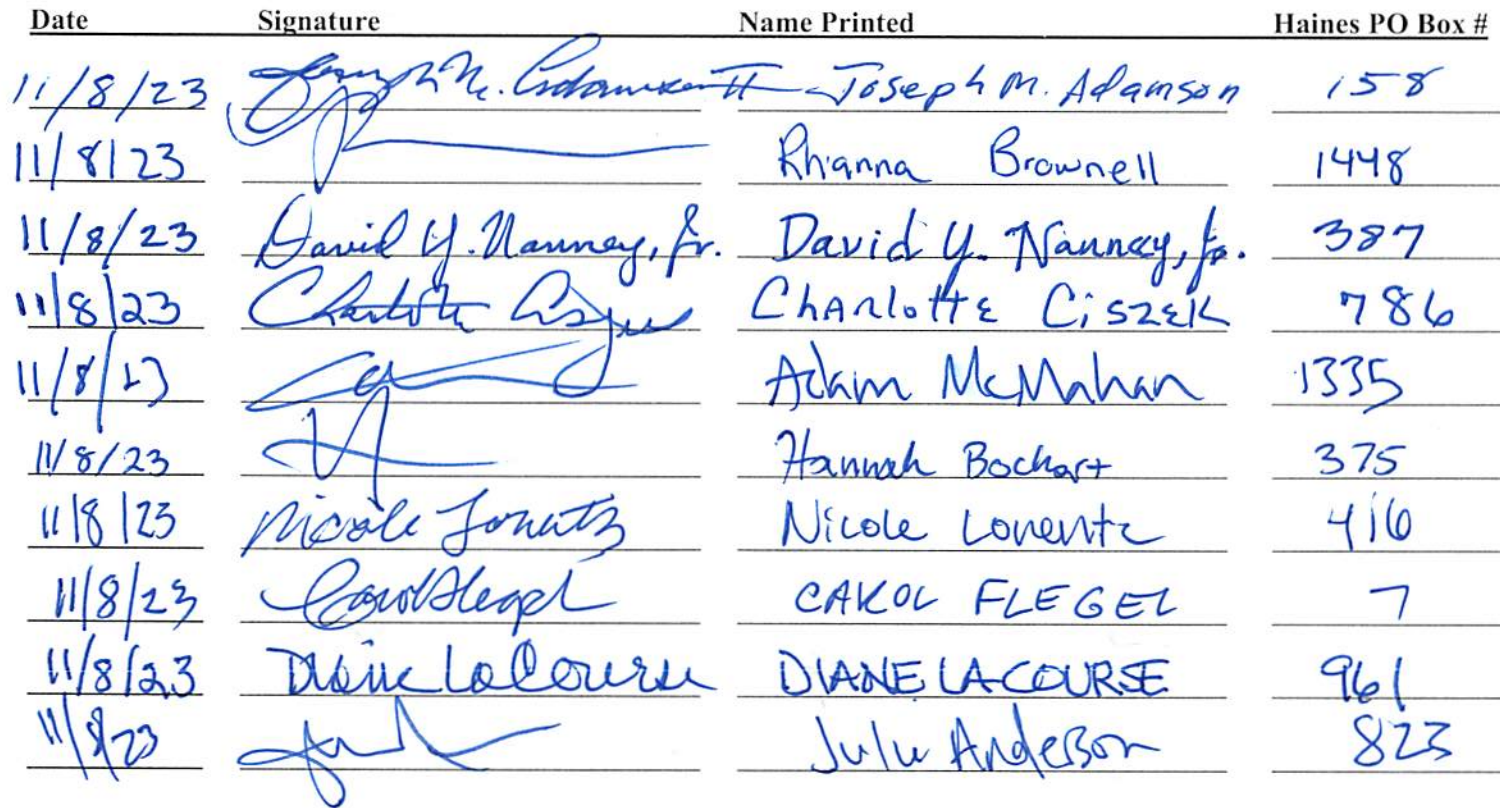 Date Signature Name Printed Haines PO Box #
11/8/23 Joseph M. Adamson II Joseph M. Adamson 158
11/8/23 Rhianna Brownell 1448
11/8/23 David Y. Nanney, Jr. David Y. Nanney, Jr. 387
11/8/23 Charlotte Ciszek 786
11/8/23 Adam McMahan 1335
11/8/23 Hannah Bochart 375
11/8/23 Nicole Lorentz Nicole Lorentz 416
11/8/23 Carol Flegel CAROL FLEGEL 7
11/8/23 Diane LaCourse DIANE LACOURSE 961
11/8/23 Anderson 823